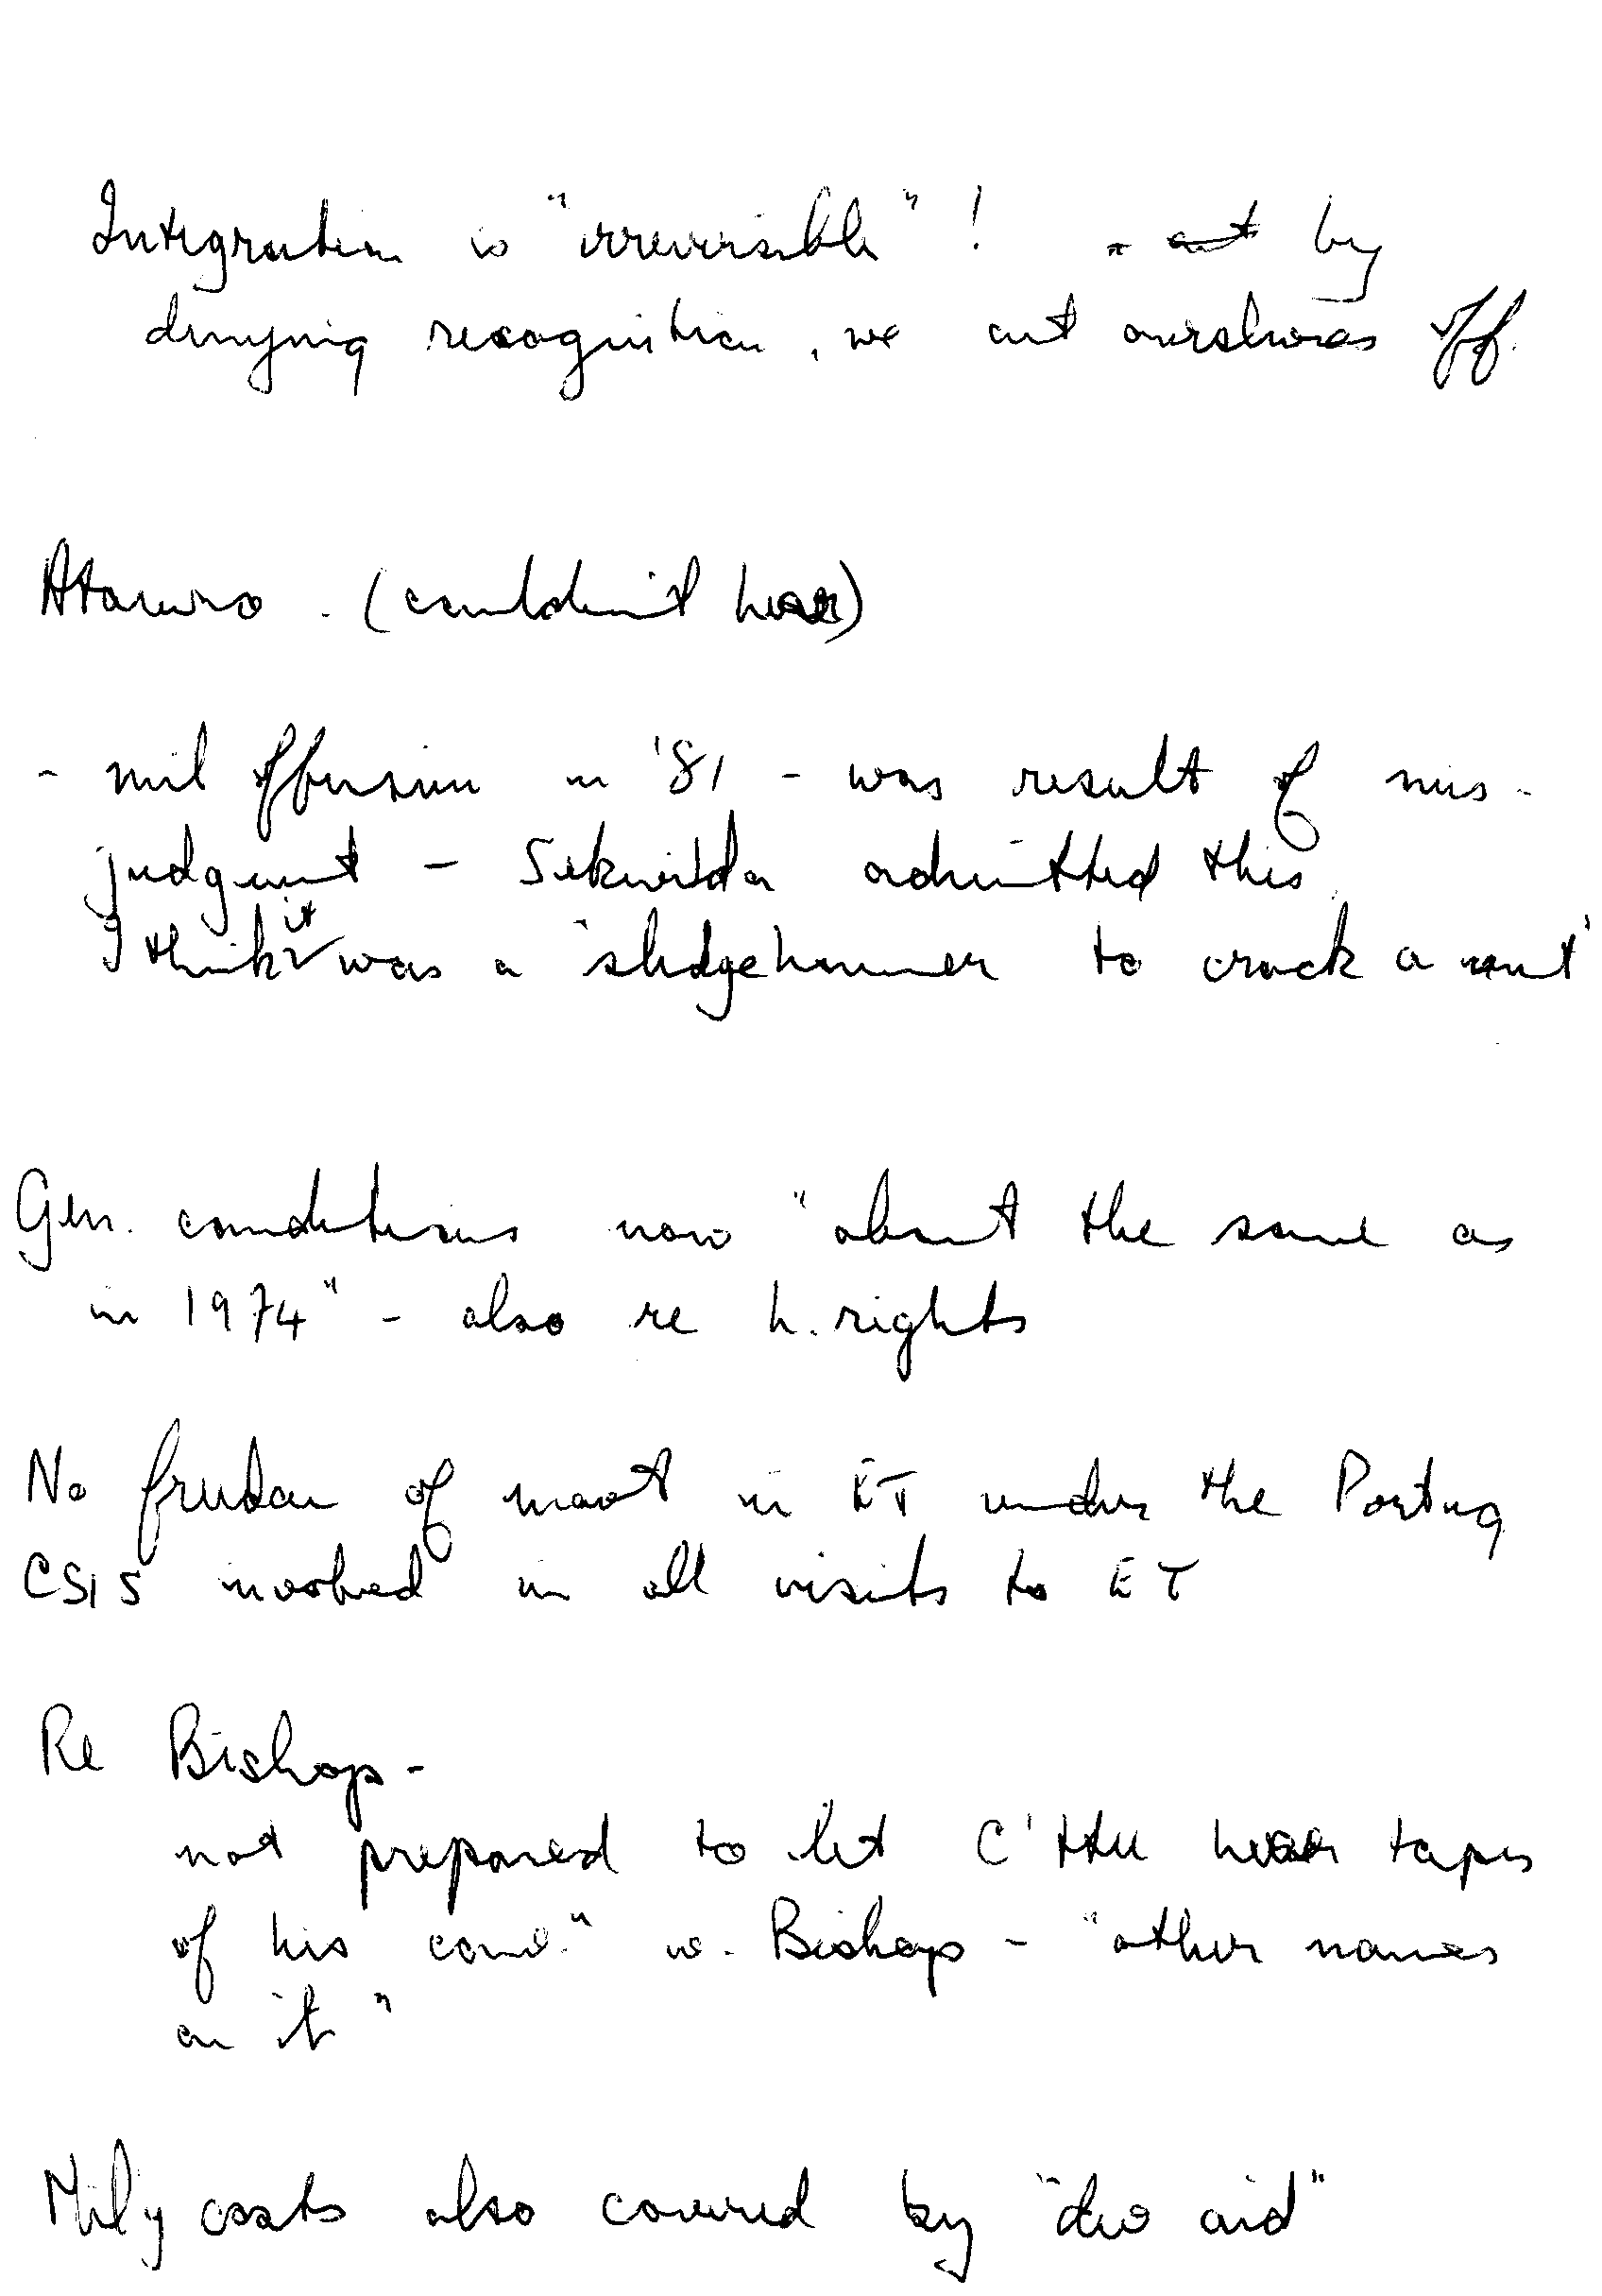 Integration is "irreversible"! - cut by
denying recognition, we cut ourselves off.
Atauro - (couldn't hear)
- mil offensive in '81 - was result of mis-
judgement - admitted this
I think it was a 'sledgehammer to crack a nut'
Gen. conditions now "about the same as
in 1974" - also re h. rights
No freedom of mov't in ET under the Portug
CSIS involved in all visits to ET
Re Bishop -
not prepared to let C'ttee hear tapes
of his conv." w. Bishop - "other names
on it"
Mil'y costs also covered by "dev aid"